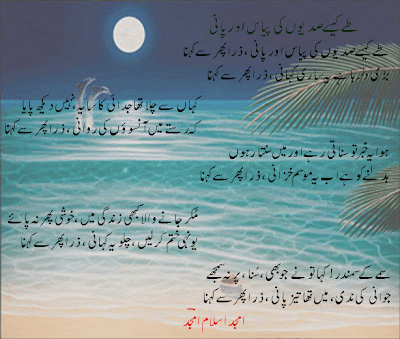 طے کیسے صدیوں کی پیاس اور پانی
طے کیسے صدیوں کی پیاس اور پانی ، ذرا پھر سے کہنا
بڑی دلربا ہے یہ ساری کہانی ، ذرا پھر سے کہنا
کہاں سے چلا تھا جدائی کا سایہ ، نہیں دیکھ پایا
کہ رستے میں تھی آنسوؤں کی روانی ، ذرا پھر سے کہنا
ہوا ، یہ خبر تو سناتی رہے اور میں سنتا رہوں
بدلنے کو ہے اب یہ موسم خزانی ، ذرا پھر سے کہنا
مکر جانے والا کبھی زندگی میں ، خوشی پھر نہ پائے
یونہی ختم کر لیں ، چلو یہ کہانی ، ذرا پھر سے کہنا
سمے کے سمندر ! کہا تو نے جو بھی ، سُنا ، پر نہ سمجھے
جوانی کی ندی ، میں تھا تیز پانی ، ذرا پھر سے کہنا
امجد اسلام امجد